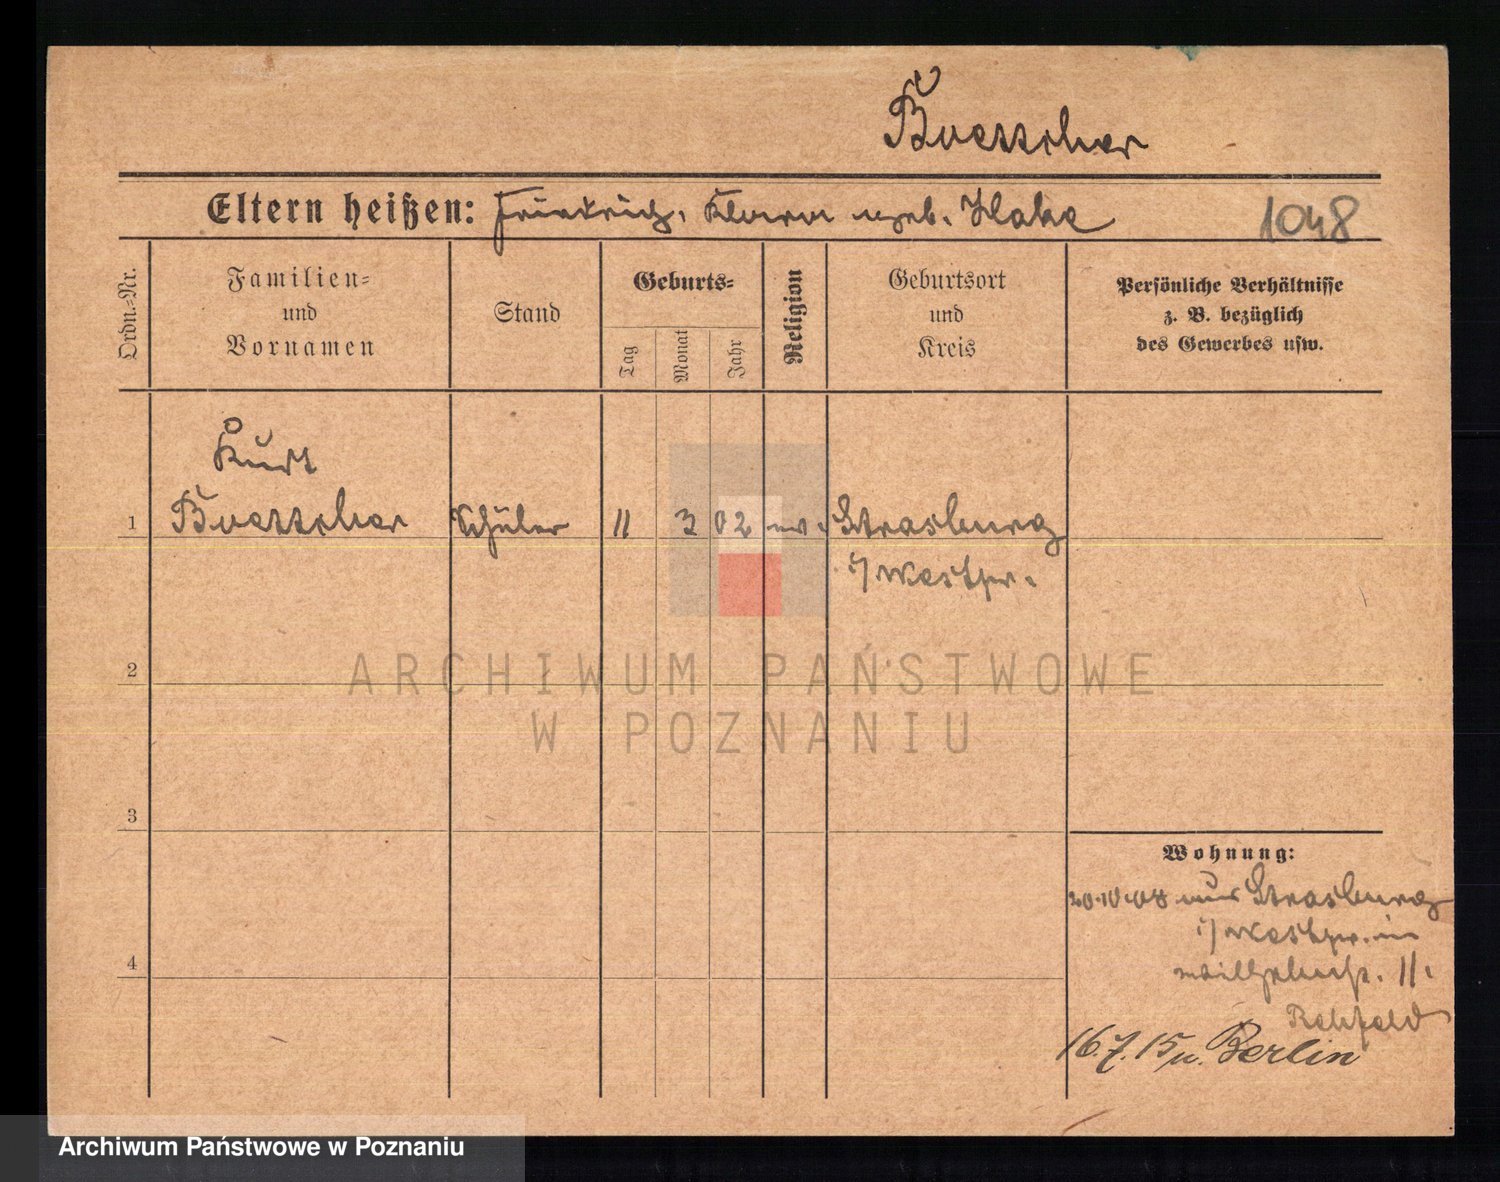 Buetscher
Eltern heißen: Friedrich, Klara geb. Hake
1048
Ordn.-Nr.
Familien-
und
Vornamen
Stand
Geburts-
Tag
Monat
Jahr
Religion
Geburtsort
und
Kreis
Persönliche Verhältnisse
z. B. bezüglich
des Gewerbes usw.
Kurt
1 Schüler 11 3 02 ev. Strasburg
i/ Westpr.
ARCHIWUM PAŃSTWOWE
2
W POZNANIU
3
Wohnung:
20.10.08 aus Strasburg
i/ Westpr. in
4
11.
Rehfeld
16.7.15 n. Berlin
Archiwum Państwowe w Poznaniu